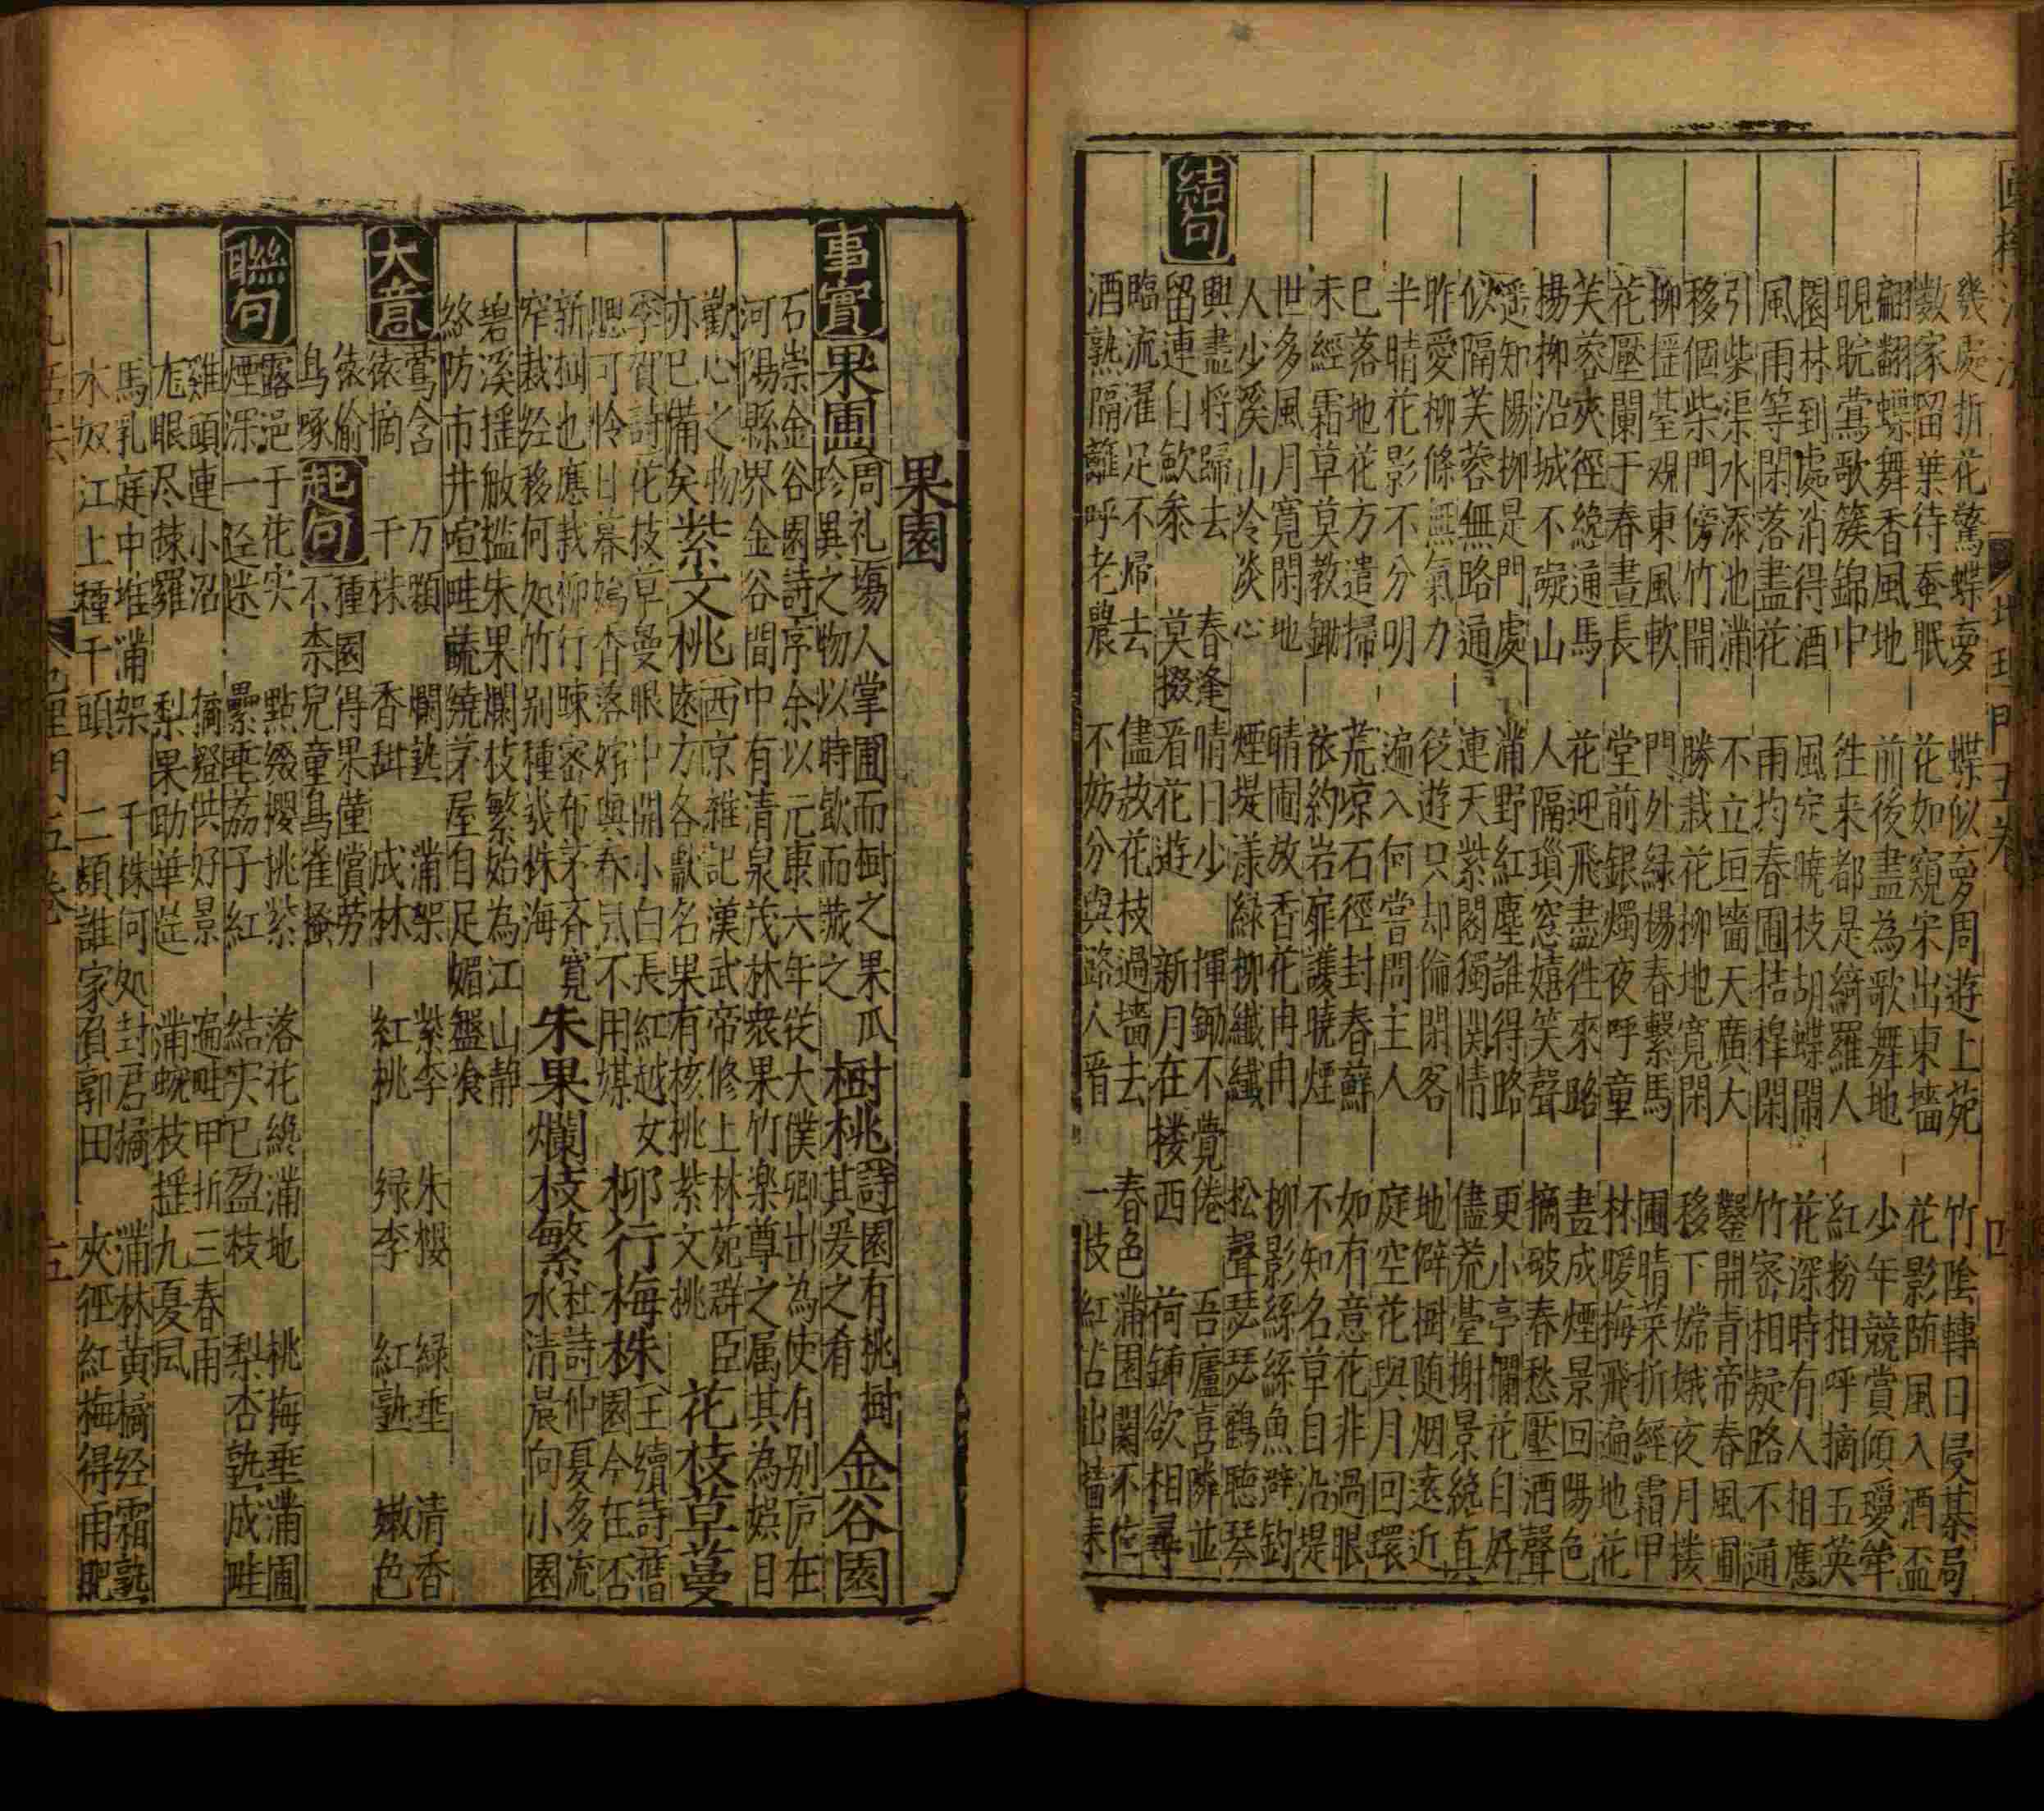 幾處折花驚蝶夢　蝶似夢周遊上苑　竹陰轉日侵棊局
數家留葉待蚕眠　花如窺宋出東墻　花影随風入酒盃
翩翩蝶舞香風地　前後盡為歌舞地　少年競賞傾
睍睆鶯歌簇錦中　徃来都是綺羅人　紅粉相呼摘五英
園林到處消得酒　風㝎曉枝胡蝶鬧　花深時有人相應
風雨等閑落盡花　雨均春圃桔槹閑　竹宻相疑路不通
引柴渠水添池滿　不立垣墻天廣大　鑿開青帝春風圃
移個柴門傍竹開　勝栽花柳地寛閑　移下嫦娥夜月楼
柳揺䑓观東風軟　門外緑楊春繫馬　圃晴菜折經霜甲
花壓闌于春晝長　堂前銀燭夜呼童　林暖梅飛遍地花
芙蓉夾徑繞通馬　花迎飛盡徃來路　盡成煙景回陽色
楊柳沿城不礙山　人隔瑣窓嬉笑聲　摘破春愁壓酒聲
遥知陽柳是門處　滿野紅塵誰得路　更小亭欄花自好
似隔芙蓉無路通　連天紫閣獨関情　儘荒臺榭景繞真
昨愛柳條無氣力　從遊只却倫閑客　地僻樹随烟遠近
半晴花影不分明　遍入何嘗問主人　庭空花與月回環
巳落地花方遣掃　荒凉石徑封春蘇　如有意花非過眼
未經霜草莫教鋤　依約岩扉護曉煙　不知名草自沿堤
世多風月寛閑地　晴圃放香花冉冉　柳影絲絲魚避釣
人少溪山冷淡心　煙堤漾綠柳纖纖　松聲瑟瑟鶴聴琴
結句
興盡将歸去　春逢晴日少　揮鋤不覺倦　吾廬喜隣並
留連自歃黍　莫掇看花遊　新月在楼西　荷鍾欲相尋
臨流濯足不帰去　儘放花枝過墻去　春色滿園関不住
酒熟隔籬呼老農　不妨分與路人看　一枝紅出墻来
果園
事實　果圃　周礼塲人掌圃而樹之果瓜
珍異之物以時歛而藏之　樹桃　詩園有桃樹
其爰之肴　金谷園
石崇金谷園詩序余以元康六年從大僕卿出為使有别庐在
河陽縣界金谷間中有清泉茂林衆果竹楽尊之属其為娯目
歡心之物
亦已備矣　紫文桃　西京雜記漢武帝修上林苑群臣
遠方各獻名果有核桃紫文桃　花枝草蔓
李賀詩花枝草蔓眼中開小白長紅越女
腮可怜日暮嫣香落嫁與春風不用媒　柳行梅株　王續詩舊
園今在否
新捌也應栽柳行踈宻布茅斉寛　杜詩仲夏多流
窄裁经移何処竹别種幾株海　朱果爛枝繁　水清晨向小園
碧溪揺艇槛朱果爛枝繁始為江山静
絡防市井喧畦蔬繞茅屋自足媚盤飡
大意
鶯含　万顆　爛熟　蒲架　紫李　朱櫻　綠垂　清香
猿摘　千株　香甜　成林　紅桃　绿李　紅熟　嫩色
猿偷
鳥啄　起句　種園得果僅償劳
不柰兒童鳥雀搔
聯句
露浥于花实　點綴櫻桃紫　落花繞滿地　桃梅垂滿圃
煙深一迳迷　纍垂荔子紅　結实已盈枝　梨杏熟成畦
雞頭連小沼　橘燈供好景　遍畦甲折三春雨
尨眼尽疎羅　梨果助華筵　滿蜿枝揺九夏风
馬乳庭中堆滿架　千株何处封君橘　滿林黄橘经霜熟
木奴江上種千頭　二頃誰家負郭田　夾徑紅梅得雨肥
地理門五卷
五